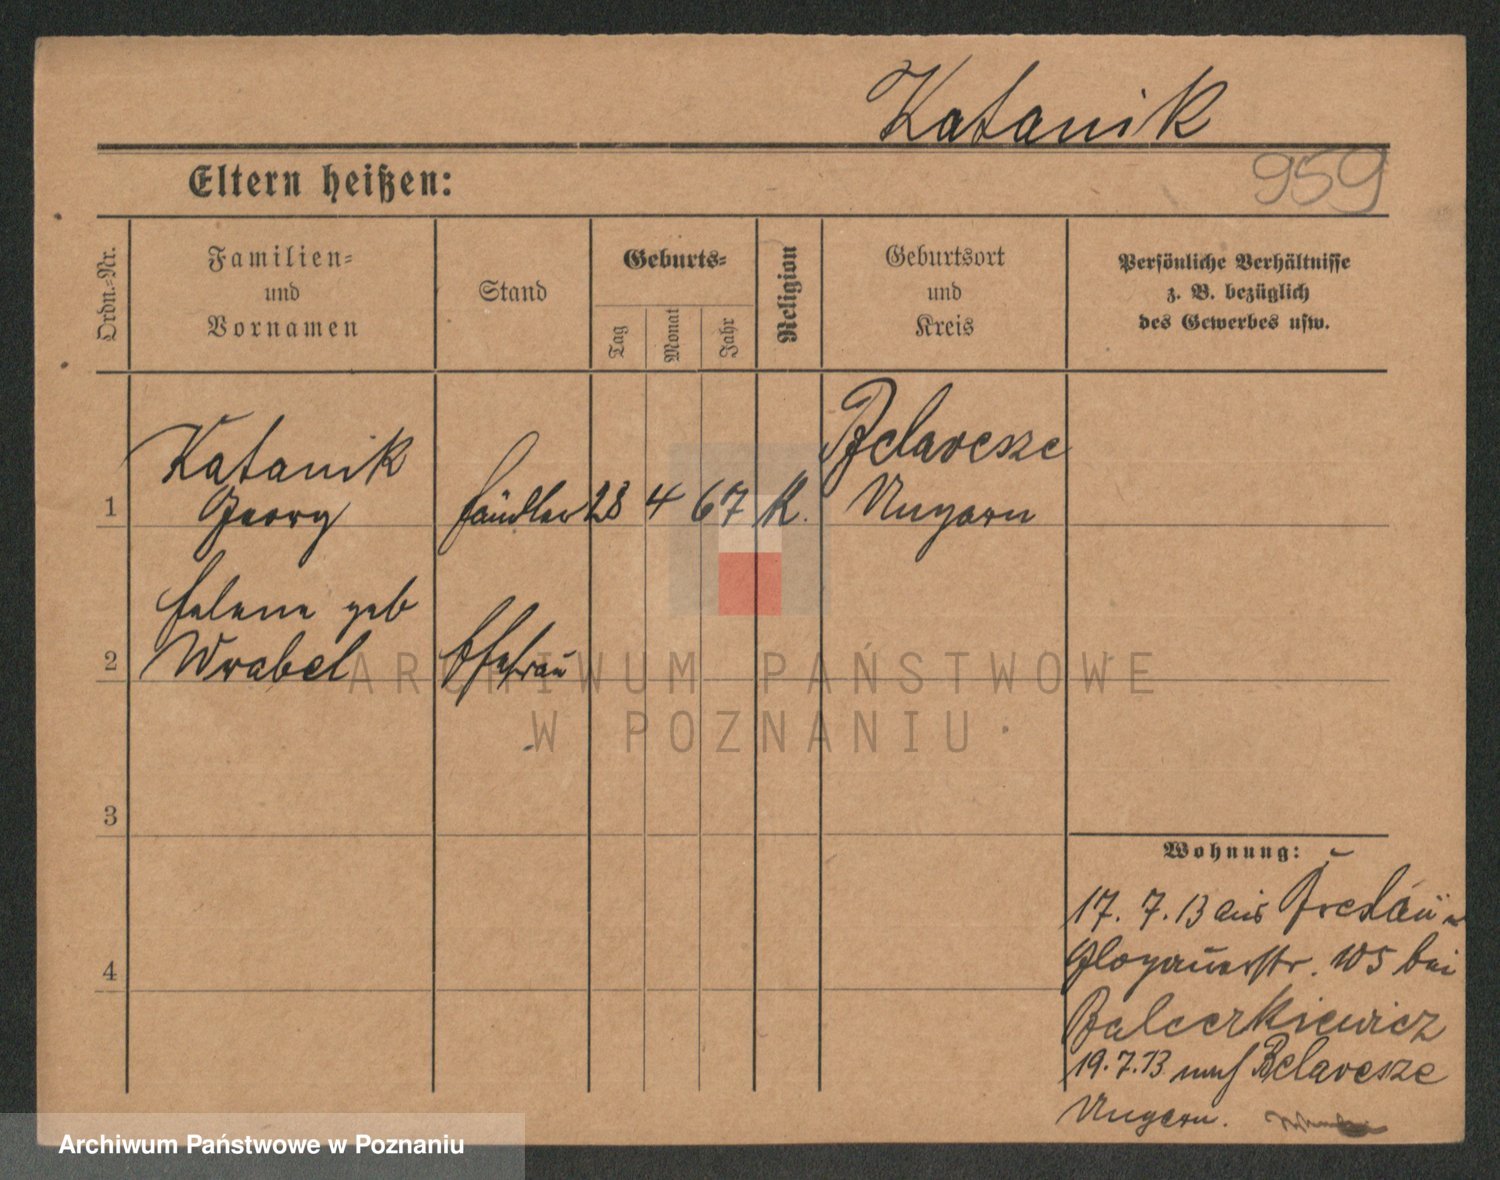 Katanik
959
Eltern heißen:
Ordn.-Nr.
Familien-
und
Vornamen
Stand
Geburts-
Tag
Monat
Jahr
Religion
Geburtsort
und
Kreis
Persönliche Verhältnisse
z. B. bezüglich
des Gewerbes usw.
Katanik
1 Georg Händler 28 4 67 K.
Belavesze
Ungarn
Helene geb
2 Wrabel Ehefrau
ARCHIWUM PAŃSTWOWE
W POZNANIU
3
Wohnung:
17. 7. 13 aus Breslau
4
Glogauerstr. 105 bei
Balcerkiewicz
19. 7. 13 nach Belavesze
Ungarn.
Archiwum Państwowe w Poznaniu